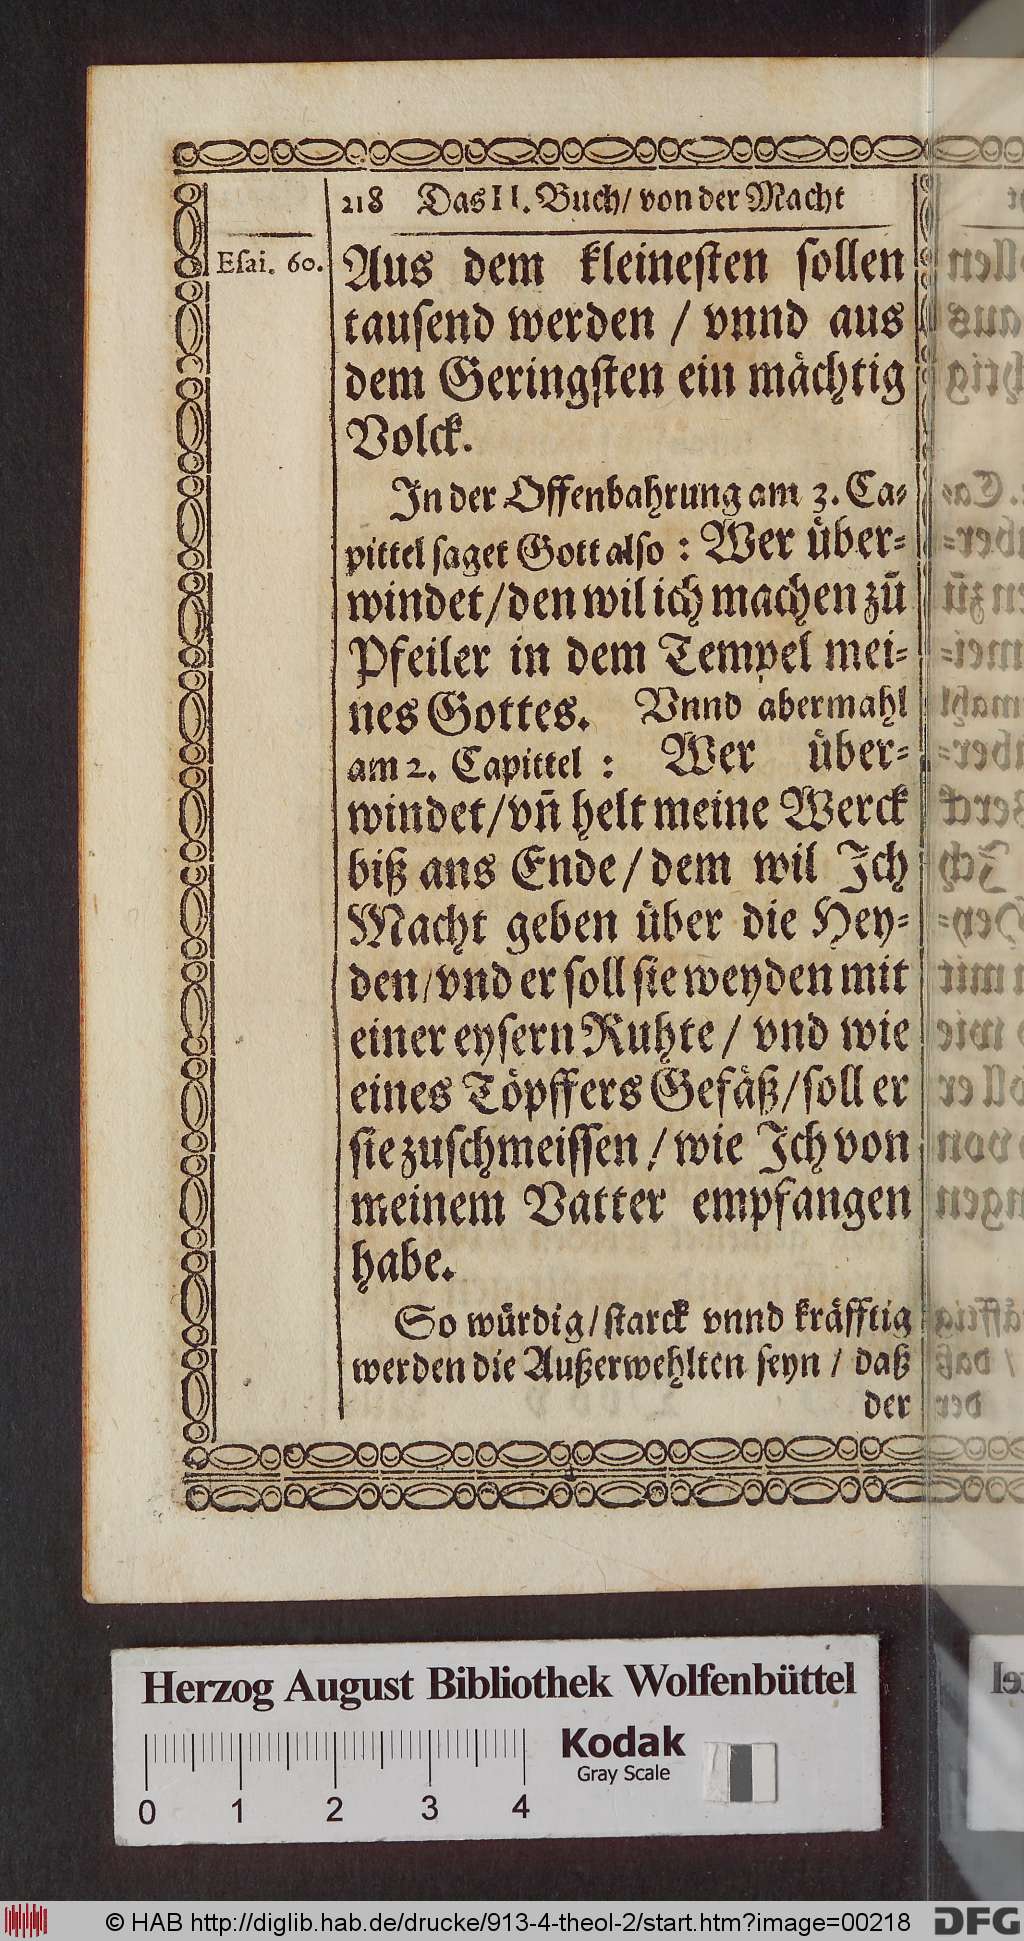 218 Das II. Buch/ von der Macht
Esai. 60.
Aus dem kleinesten sollen
tausend werden / vnnd aus
dem Geringsten ein mächtig
Volck.
In der Offenbahrung am 3. Ca-
pittel saget Gott also : Wer über-
windet/den wil ich machen zū
Pfeiler in dem Tempel mei-
nes Gottes. Vnnd abermahl
am 2. Capittel : Wer über-
windet/vn̄ helt meine Werck
biß ans Ende/dem wil Ich
Macht geben über die Hey-
den/vnd er soll sie weyden mit
einer eysern Ruhte/ vnd wie
eines Töpffers Gefäß/soll er
sie zuschmeissen/wie Ich von
meinem Vatter empfangen
habe.
So würdig/starck vnnd kräfftig
werden die Außerwehlten seyn / daß
der
Herzog August Bibliothek Wolfenbüttel
Kodak
Gray Scale
0 1 2 3 4
© HAB http://diglib.hab.de/drucke/913-4-theol-2/start.htm?image=00218
DFG